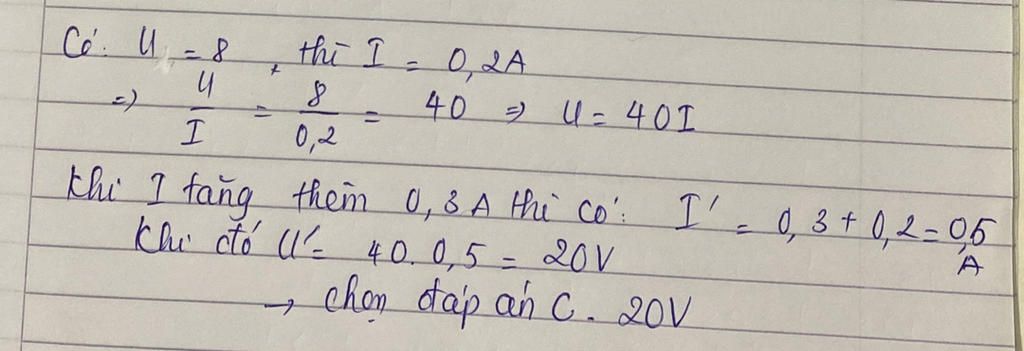 Có: U = 8, thì I = 0,2A
=> U/I = 8/0,2 = 40 => U = 40I
Khi I tăng thêm 0,3A thì có: I' = 0,3 + 0,2 = 0,5 A
Khi đó U' = 40.0,5 = 20V
→ chọn đáp án C. 20V